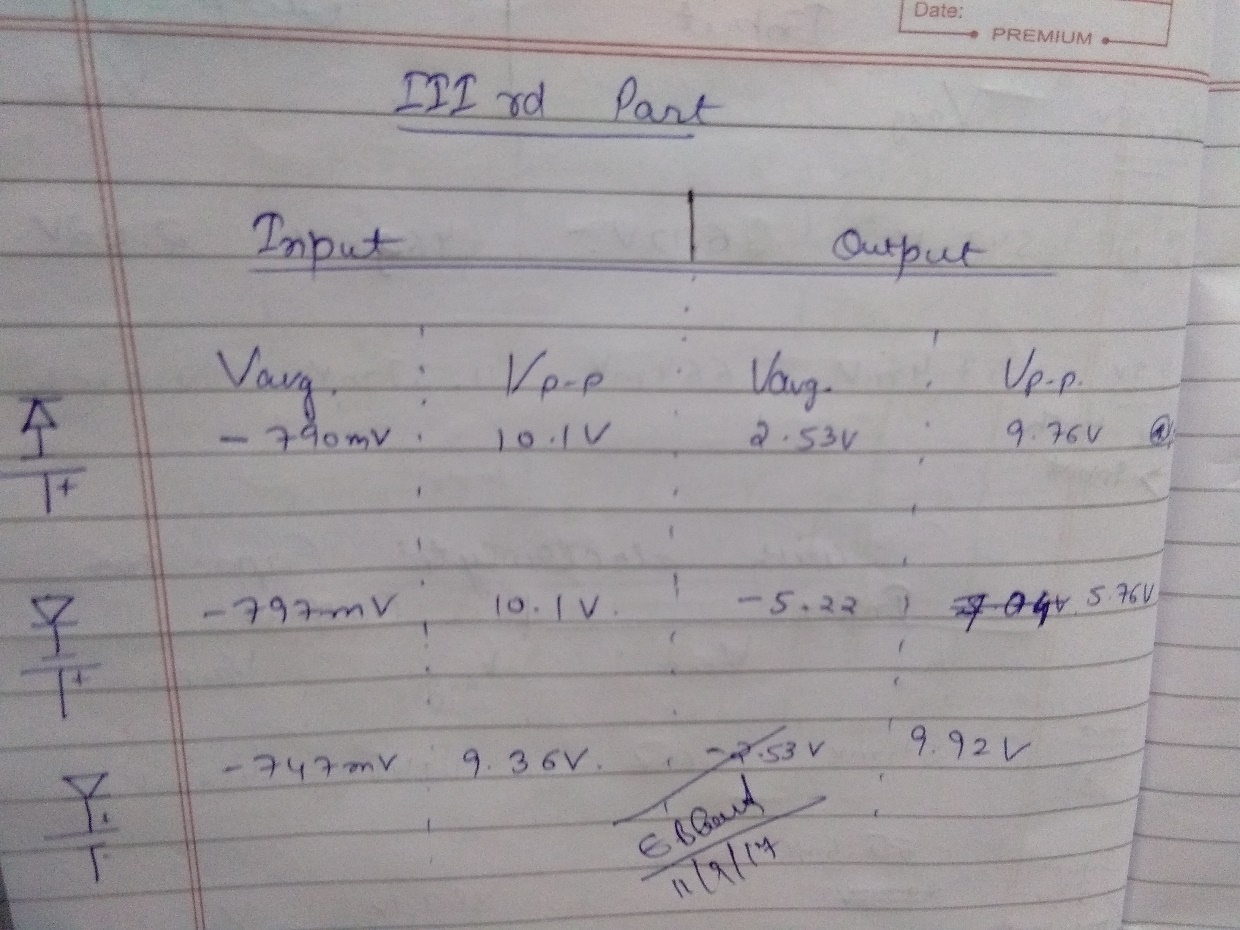 Date:
PREMIUM
III rd Part
Input Output
Vavg. Vp-p Vavg. Vp-p.
- 790mV 10.1V 2.53V 9.76V
+
-797mV 10.1V. -5.22 5.76V
+
-747mV 9.36V. 9.92V
11/9/17